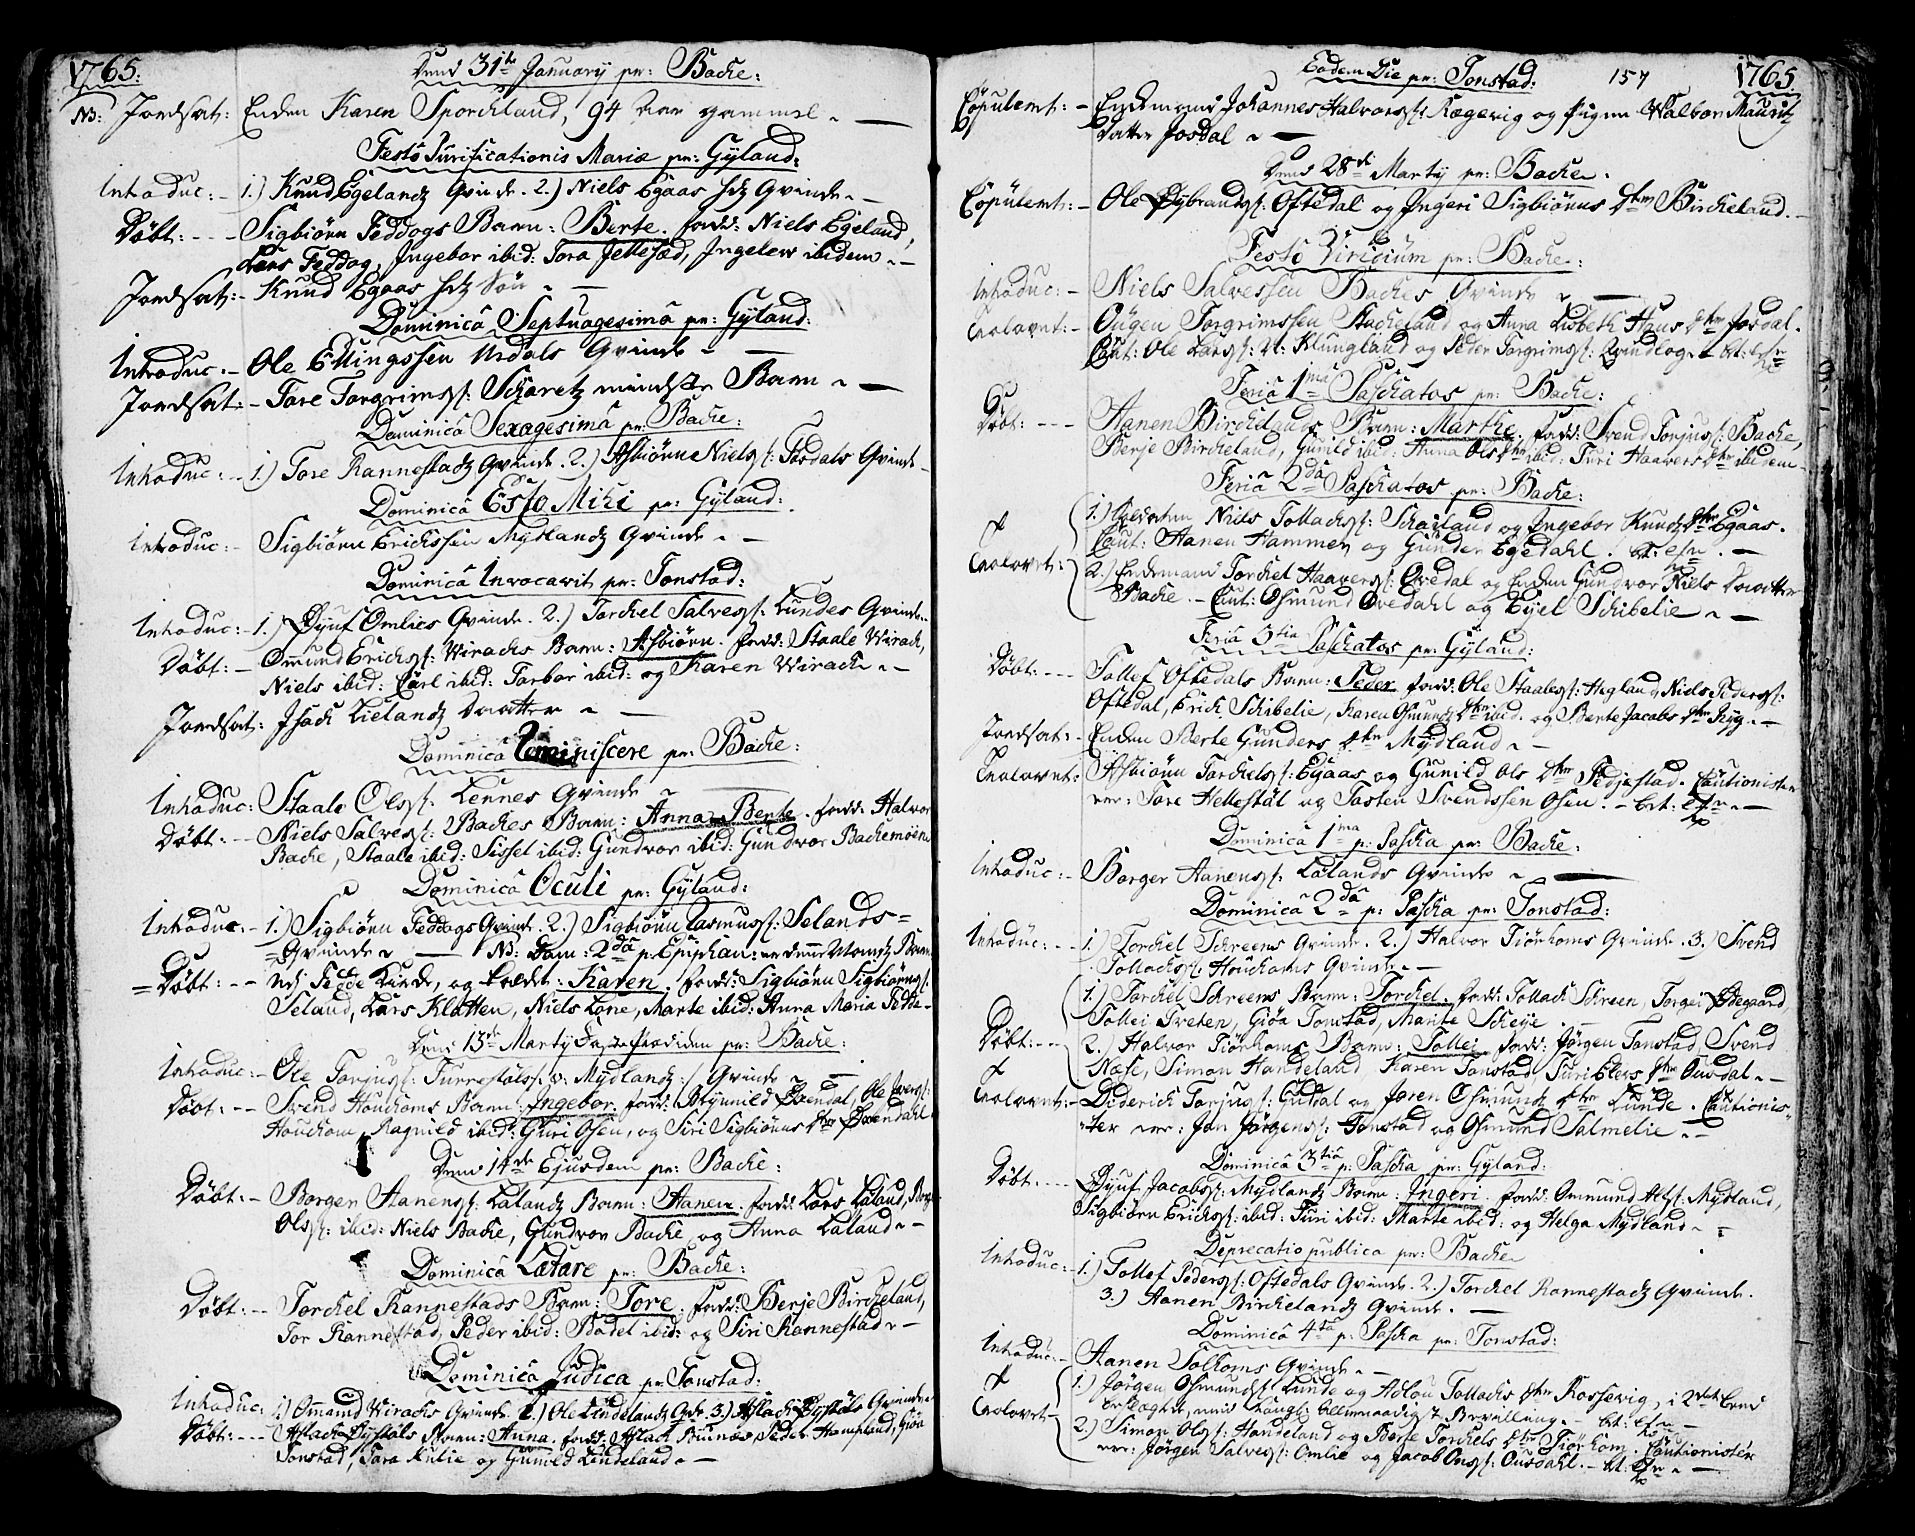 1765:
Dend 31te January pr: Backe:
NB: Jordsat: Enken Karen Sporckland, 94 Aar gammel
Festo Purificationis Mariæ pr: Gyland:
Introduc: - 1.) Knud Egelandz Qvinde. 2.) Niels Egaas hds Qvinde
Døbt: - - - Sigbiörn Feddogs Barn: Berte. fadd: Niels Egeland,
Lars Feddog, Ingebor ibid: Tora Jettesæd, Ingelew ibidem
Jordsat: - Knud Egaas hds Sön
Dominicâ Septuagesimâ pr: Gyland:
Introduc: - Ole Ellingssen Urdals Qvinde
Jordsat: - Tore Torgrimss: Skaretz mindste Barn
Dominicâ Sexagesimâ pr: Backe:
Introduc: - - 1.) Tore Rannestadz Qvinde. 2.) Asbiörn Nielss: Josdals Qvinde
Dominicâ Esto Mihi pr: Gyland:
Introduc: - Sigbiörn Erickssen Mydlandz Qvinde
Dominicâ Invocavit pr: Tonstad:
Introduc: - 1.) Öyuf Omlies Qvinde. 2.) Torckel Salvess: Lundes Qvinde
Døbt: - Omund Erickss: Wiracks Barn: Asbiörn. fadd: Staale Wirack,
Niels ibid: Carl ibid: Torbor ibid: og Karen Wirack
Jordsat: Isack Lielandz Daatter
Dominicâ Reminiscere pr: Backe:
Introduc: Staale Olss: Kennes Qvinde
Døbt: - - Niels Salvess: Backes Barn: Anna Berte. fadd: Halvor
Backe, Staale ibid: Sissel ibid: Gundvor ibid: Gundvor Backemoene
Dominicâ Oculi pr: Gyland:
Introduc: - 1.) Sigbiörn Feddogs Qvinde. 2.) Sigbiörn Rasmuss: Selands=
=Qvinde NB: Dom: 2dâ p: Epiphan: er denne Mands Barn
=Døbt: - - ved Fedde Kirke, og kaldet: Karen. fadd: Sigbiörn Sigbiörnss:
Seland, Lars Klatten, Niels Lone, Marte ibid: Anna Maria Fedde
Dend 13de Marty pr: Backe:
Introduc: - Ole Torjuss: Turrestöls v: Mydlandz Qvinde
Døbt: - - Svend Houckoms Barn: Ingebor. fadd: Öyuild Övendal, Ole Iverss:
Houckom, Ragnild ibid: Guri Osen, og Siri Sigbiörns dtr Övendahl
Dend 14de Ejusdem pr: Backe:
Døbt: - Borger Aanenss: Lalandz Barn: Aanen. fadd: Lars Laland, Borge
Olss: ibid: Niels Backe, Gundvor Backe, og Anna Laland
Dominicâ Lætare pr: Backe:
Døbt: - - Torckel Rannestads Barn: Tore. fadd: Berje Birckeland,
Tor Rannestad, Peder ibid: Bodel ibid: og Siri Rannestad
Dominicâ Judica pr: Tonstad:
Introduc: 1.) Ommund Wiracks Qvinde. 2.) Ole Lindelandz Qvde. 3.) Aslack Öystöls Qvinde
Døbt: - - - Aslack Öystöls Barn: Anna. fadd: Aslack Biunes, Peder Hompland, Giöa
Tonstad, Tora Kulie og Gunild Lindeland
Eodem Die pr: Tonstad: 157 1765
Copulemt: - Enckemand Johannes Halvorss: Rægevig og Pigen Walbor Mauritz
Datter Josdal
Dend 28de Marty pr: Backe.
Copulemt: - Ole Öybrandss: Oftedal og Ingeri Sigbiörns dtr Birckeland.
Festo Viridium pr: Backe:
Introduc: - Niels Salvessen Backes Qvinde
Trolovet: - Ougen Torgrimssen Stackeland og Anna Lisbeth Hans dtr Josdal.
Caut: Ole Larss: N: Klungland og Peder Torgrimss: Qvindlog
Feriâ 1mâ Paschatos pr: Backe:
Døbt: - - - Aanen Birckelands Barn: Marthe. fadd: Svend Torjuss: Backe,
Berje Birckeland, Gunild ibid: Anna Ols dtr ibid: Turi Haavers dtr ibidem
Feriâ 2dâ Paschatos pr: Backe:
1.) Soldaten Niels Tollackss: Schailand og Ingebor Knudz dtr Egaas.
Caut: Aanen Hammer og Gunder Egedahl.
Trolovet: 2.) Enckemand Torckel Haaverss: Ovedal og Enken Gundvor Niels Daatter
Backe. - Caut: Osmund Ovedahl og Eyel Schibelie
Feriâ 3tiâ Paschatos pr: Gyland:
Døbt: - - - Tollef Oftedals Barn: Peder. fadd: Ole Staaless: Hegland, Niels Pederss:
Oftedal, Erick Schibelie, Karen Osmundz dtr ibid. og Berte Jacobs dtr Ryg
Jordsat: - Enken Berte Gunders dtr Mydland
Trolovet: Asbiörn Torckelss: Egaas og Gunild Ols dtr Fedjestad. Cautionister
ere: Tore Hellestöl og Tosten Svendssen Osen.
Dominicâ 1ma p: Pascha pr: Backe:
Introduc: - Borger Aanenss: Lalands Qvinde
Dominicâ 2dâ p: Pascha pr: Tonstad:
Introduc: - - 1.) Torckel Schreens Qvinde. 2.) Halvor Tiörhoms Qvinde. 3.) Svend
Tollackss: Houckoms Qvinde
1.) Torckel Schreens Barn: Torckel. fadd: Tollack Schreen, Torgei Ödegaard,
Tollei Treten, Giöa Tonstad, Marite Scheye.
Døbt: - - 2.) Halvor Tiörhoms Barn: Tollei. fadd: Jörgen Tonstad, Svend
Næse, Simon Handeland, Karen Tonstad, Turi Elers dtr Ousdal
Trolovet: - Diderick Torjuss: Guddal og Joren Osmundz dtr Lunde. Cautionis-
-ter ere: Jon Jörgenss: Tonstad og Osmund Salmelie
Dominicâ 3tiâ p: Pascha pr: Gyland:
Døbt: - - - Öyuf Jacobss: Mydlandz Barn: Ingeri. fadd: Ommund Alfs: Mydland,
Sigbiörn Erickss: ibid: Turi ibid: Marte ibid: og Helga Mydland
Deprecatio publica pr: Backe
Introduc: - 1.) Tollef Pederss: Oftedals Qvinde. 2.) Torckel Rannestadz Qvinde.
3.) Aanen Birckelandz Qvinde.
Dominicâ 4tâ p: Pascha pr: Tonstad:
Introduc: - Aanen Solhoms Qvinde
Trolovet 1.) Jörgen Osmundss: Lunde og Adlou Tollacks dtr Rossevig, i 2det Leed
beslægtet, med Kongl: allernaadigst Bevilling.
2.) Simon Olss: Handeland og Berte Torckels dtr Tiörhom. Cautionister
ere: Jörgen Salvess: Omlie og Jacob Onss: Ousdahl.